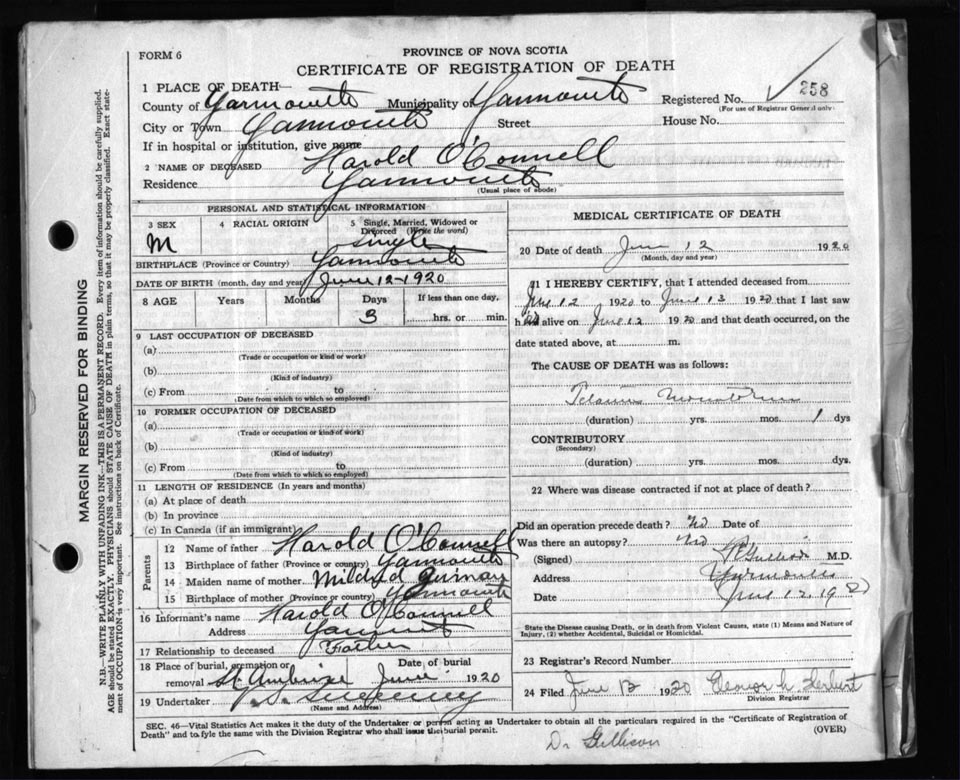 FORM 6
PROVINCE OF NOVA SCOTIA
CERTIFICATE OF REGISTRATION OF DEATH
258
1 PLACE OF DEATH
County of Yarmouth Municipality of Yarmouth Registered No.
(For use of Registrar General only)
City or Town Yarmouth Street House No.
If in hospital or institution, give name
2 NAME OF DECEASED Harold O'Connell
Residence Yarmouth
(Usual place of abode)
PERSONAL AND STATISTICAL INFORMATION
3 SEX 4 RACIAL ORIGIN 5 Single, Married, Widowed or
Divorced (Write the word)
M single
BIRTHPLACE (Province or Country) Yarmouth
DATE OF BIRTH (month, day and year) June 12-1920
8 AGE Years Months Days If less than one day,
3 hrs. or min.
9 LAST OCCUPATION OF DECEASED
(a)
(Trade or occupation or kind or work)
(b)
(Kind of industry)
(c) From to
(Date from which to which so employed)
10 FORMER OCCUPATION OF DECEASED
(a)
(Trade or occupation or kind of work)
(b)
(Kind of industry)
(c) From to
(Date from which to which so employed)
11 LENGTH OF RESIDENCE (In years and months)
(a) At place of death
(b) In province
(c) In Canada (if an immigrant)
Parents
12 Name of father Harold O'Connell
13 Birthplace of father (Province or country) Yarmouth
14 Maiden name of mother Mildred
15 Birthplace of mother (Province or country) Yarmouth
16 Informant's name Harold O'Connell
Address
17 Relationship to deceased Father
18 Place of burial, cremation or Date of burial
removal St Ambrose June 1920
19 Undertaker V. S. Sweeney
(Name and Address)
MEDICAL CERTIFICATE OF DEATH
20 Date of death June 12 1920
(Month, day and year)
21 I HEREBY CERTIFY, that I attended deceased from
June 12 1920 to June 13 1920 that I last saw
h alive on June 12 1920 and that death occurred, on the
date stated above, at m.
The CAUSE OF DEATH was as follows:
(duration) yrs. mos. 1 dys
CONTRIBUTORY
(Secondary)
(duration) yrs. mos. dys.
22 Where was disease contracted if not at place of death?
Did an operation precede death? No Date of
Was there an autopsy? No
(Signed) M.D.
Address Yarmouth
Date June 12 19
State the Disease causing Death, or in death from Violent Causes, state (1) Means and Nature of
Injury, (2) whether Accidental, Suicidal or Homicidal.
23 Registrar's Record Number
24 Filed June 1920 Herbert
Division Registrar
SEC. 46—Vital Statistics Act makes it the duty of the Undertaker or person acting as Undertaker to obtain all the particulars required in the "Certificate of Registration of
Death" and to fyle the same with the Division Registrar who shall issue the burial permit. (OVER)
Dr Gullison
MARGIN RESERVED FOR BINDING
N.B.—WRITE PLAINLY WITH UNFADING INK—THIS IS A PERMANENT RECORD. Every item of information should be carefully supplied.
AGE should be stated EXACTLY. PHYSICIANS should STATE CAUSE OF DEATH in plain terms, so that it may be properly classified. Exact state-
ment of OCCUPATION is very important. See instructions on back of Certificate.